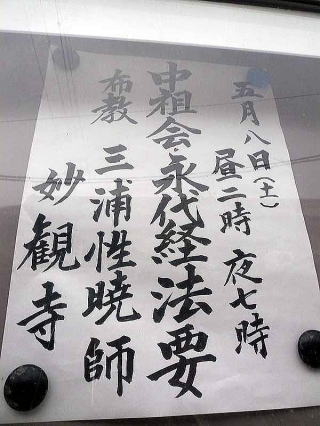 五月八日(土)
昼二時 夜七時
中祖会・永代経法要
布教 三浦性暁師
妙観寺